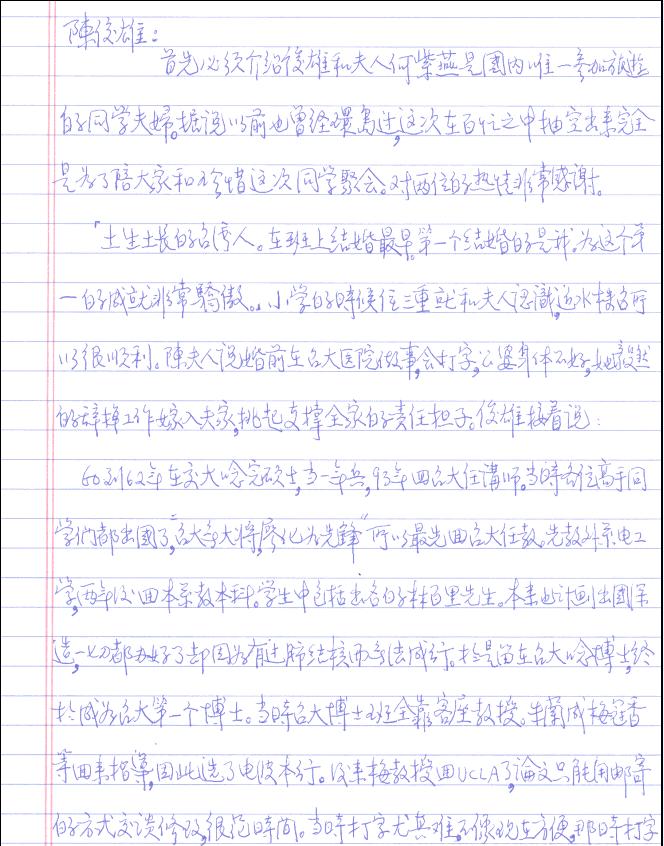 陳俊雄：
首先必須介紹俊雄和夫人何紫燕是國内唯一參加旅遊
的同学夫婦。据说以前也曾经環島过，这次在百忙之中抽空出来完全
是为了陪大家和珍惜这次同学聚会。对两位的热情非常感谢。
「土生土长的台湾人。在班上结婚最早。第一个结婚的是我。为这个第
一的成就非常驕傲。」小学的時候住三重就和夫人认識，近水楼台所
以很顺利。陳夫人说婚前在台大医院做事，会打字，公婆身体不好，她毅然
的辞掉工作嫁入夫家，挑起支撑全家的責任担子。俊雄接着说：
60到62年在交大唸完硕士，当一年兵，93年回台大任講师。当時各位高手同
学们都出國了，"台大无大将，廖化为先鋒"所以最先回台大任教。先教外系电工
学，两年後回本系教本科。学生中包括出名的林百里先生。本来也计画出國深
造，一切都办好了却因为有过肺结核而无法成行。於是留在台大唸博士，终
於成为台大第一个博士。当時台大博士班全靠客座教授。朱蘭成 梅冠香
等回来指導，因此选了电波本行。後来梅教授回UCLA了，論文只能用邮寄
的方式交谈修改，很花時间。当時打字尤其难。不像现在方便，那時打字